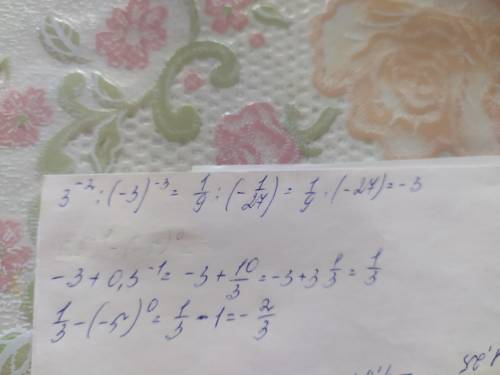 3⁻² : (-3)⁻³ = 1/9 : (-1/27) = 1/9 · (-27) = -3
-3 + 0,3⁻¹ = -3 + 10/3 = -3 + 3 1/3 = 1/3
1/3 - (-5)⁰ = 1/3 - 1 = - 2/3